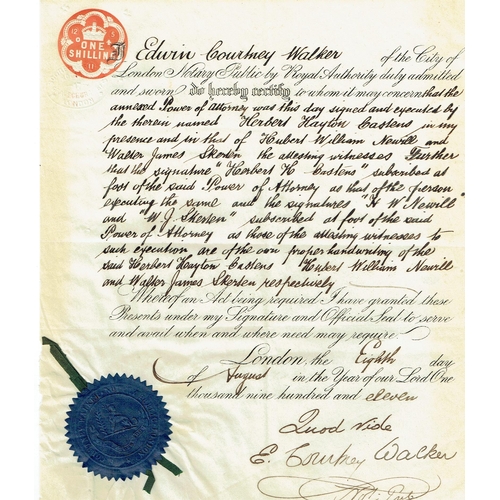 ONE
SHILLING
I Edwin Courtney Walker of the City of
London Notary Public by Royal Authority duly admitted
and sworn do hereby certify to whom it may concern that the
annexed Power of attorney was this day signed and executed by
the therein named Herbert Hayton Castens in my
presence and in that of Hubert William Newill and
Walter James Skerten the attesting witnesses Further
that the signature "Herbert H Castens" subscribed at
foot of the said Power of Attorney as that of the person
executing the same and the signatures "H W Newill"
and "W. J. Skerten" subscribed at foot of the said
Power of Attorney as those of the attesting witnesses to
such execution are of the own proper handwriting of the
said Herbert Hayton Castens Hubert William Newill
and Walter James Skerten respectively
Whereof an Act being required I have granted these
Presents under my Signature and Official Seal to serve
and avail when and where need may require.
London, the Eighth day
of August in the Year of our Lord One
thousand nine hundred and eleven
Quod Vide
E. Courtney Walker